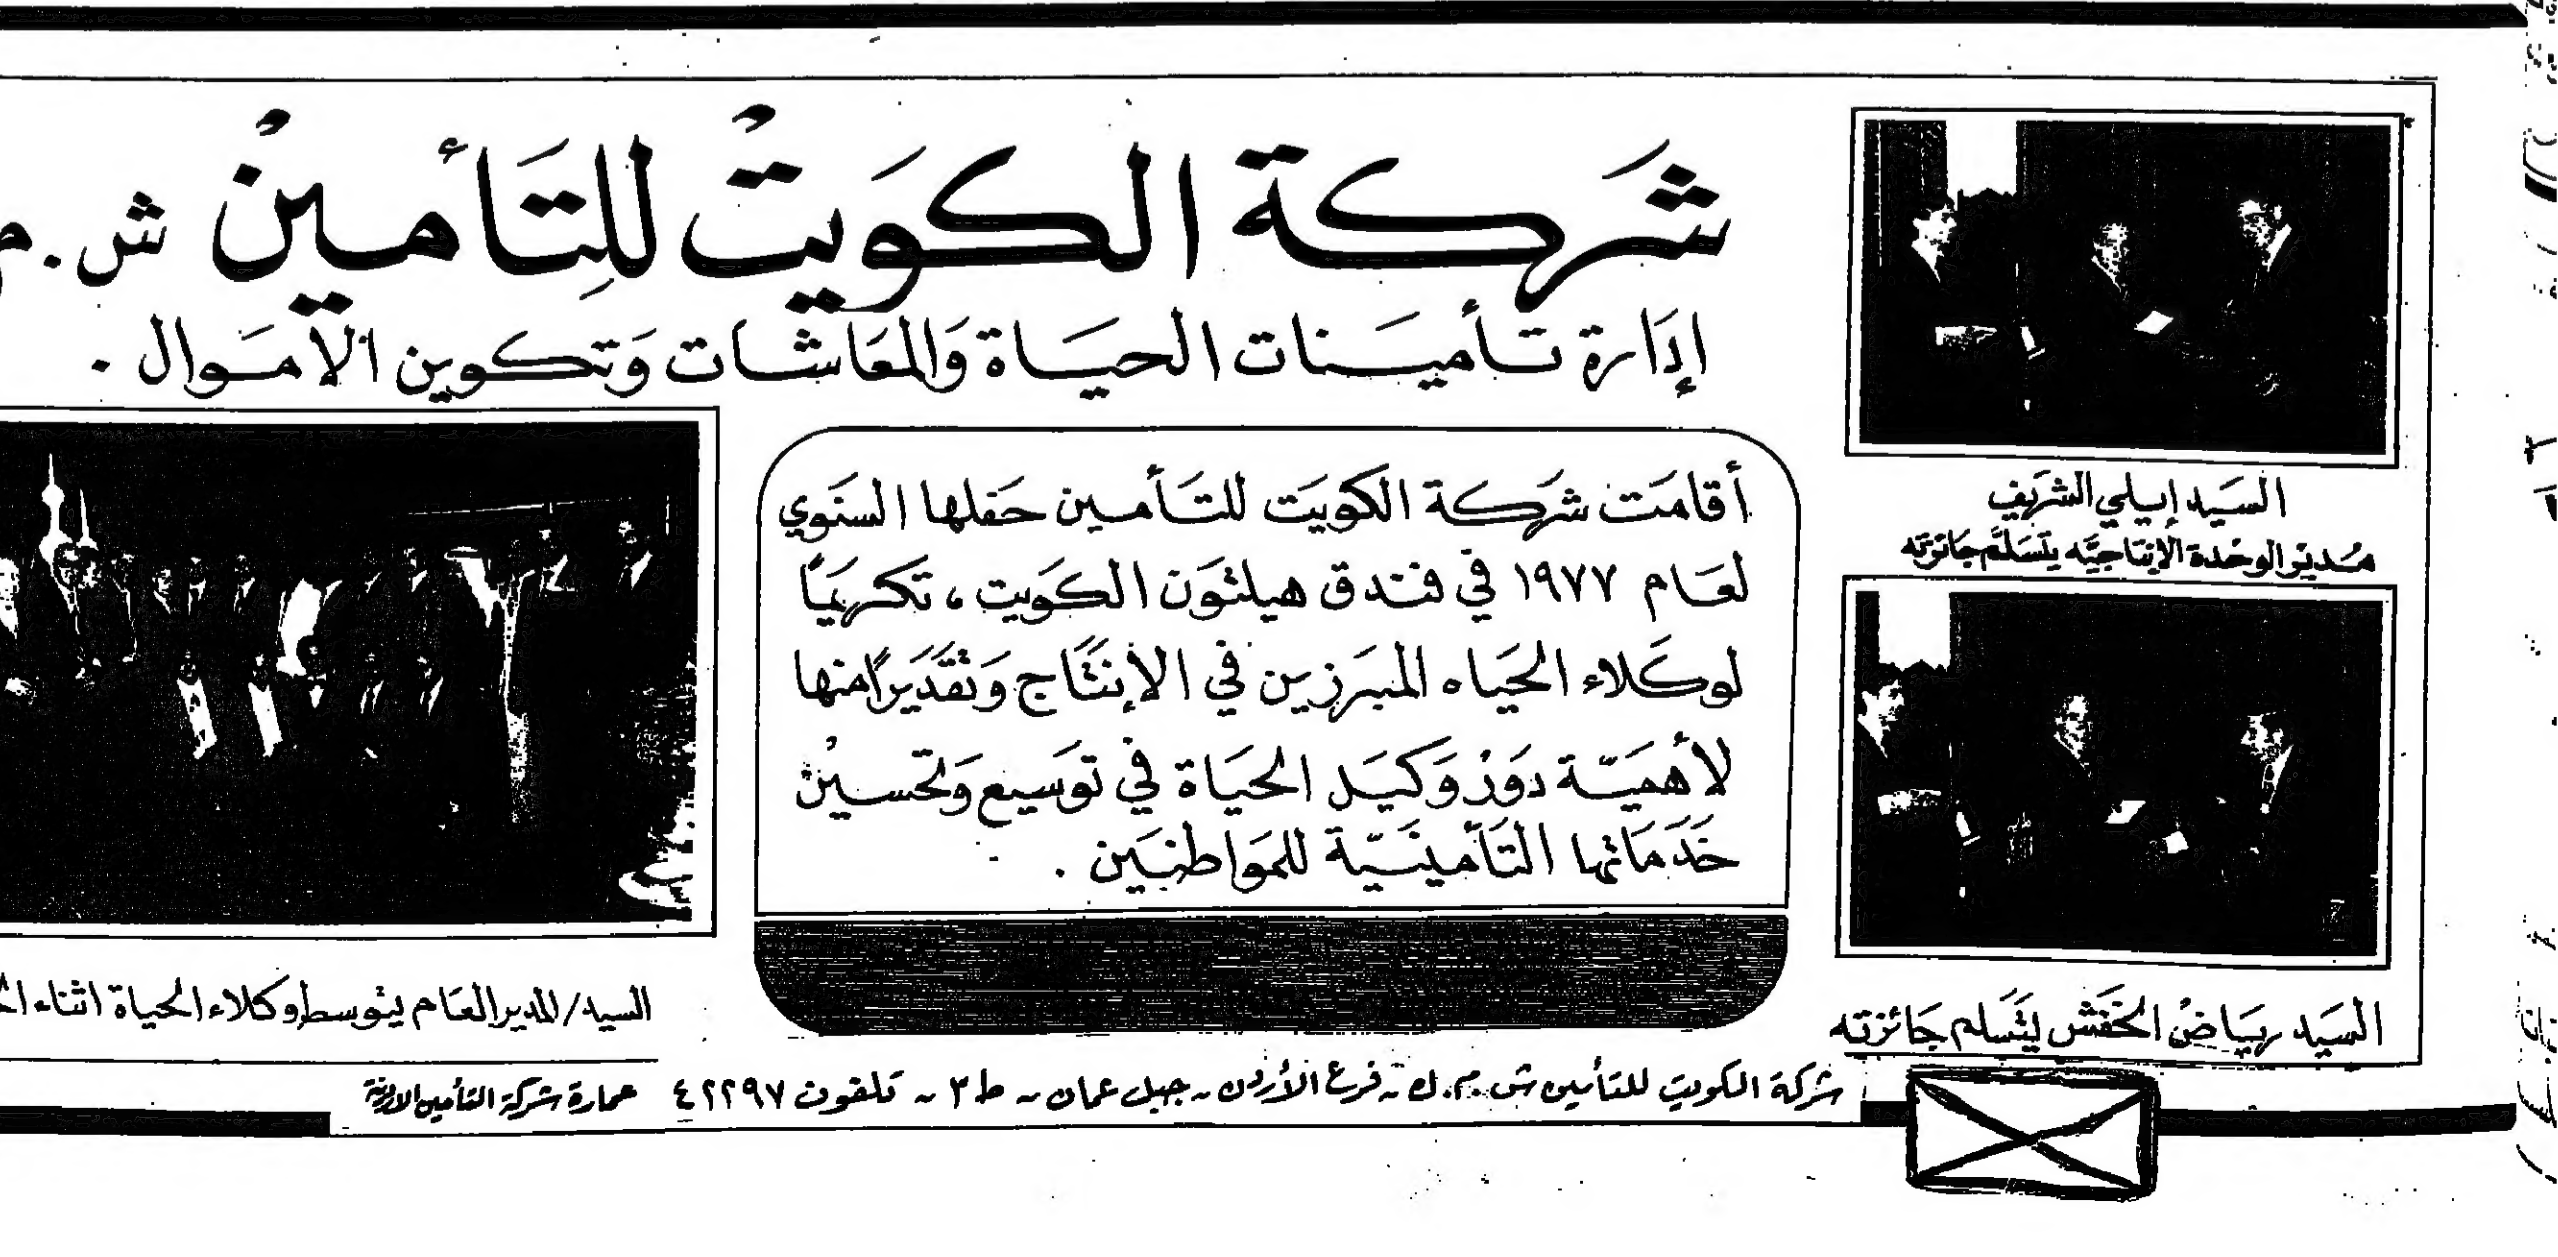 شركة الكويت للتأمين ش.م
إدارة تأمينات الحياة والمعاشات وتكوين الاموال .
السيد إيلي الشريف
مدير الوحدة الإنتاجيه يتسلم جائزته
أقامت شركة الكويت للتأمين حفلها السنوي
لعام ١٩٧٧ في فندق هيلتون الكويت ، تكريماً
لوكلاء الحياه المبرزين في الإنتاج وتقديراً منها
لأهمية دور وكيل الحياة في توسيع وتحسين
خدماتها التأمينية للمواطنين .
السيد رياض الخفش يتسلم جائزته
السيد/المدير العام يتوسط وكلاء الحياة اثناء
شركة الكويت للتأمين ش.م.ك - فرع الأردن - جبل عمان - ط ٣ - تلفون ٤٢٢٩٧ عمارة شركة التأمين الاردنية